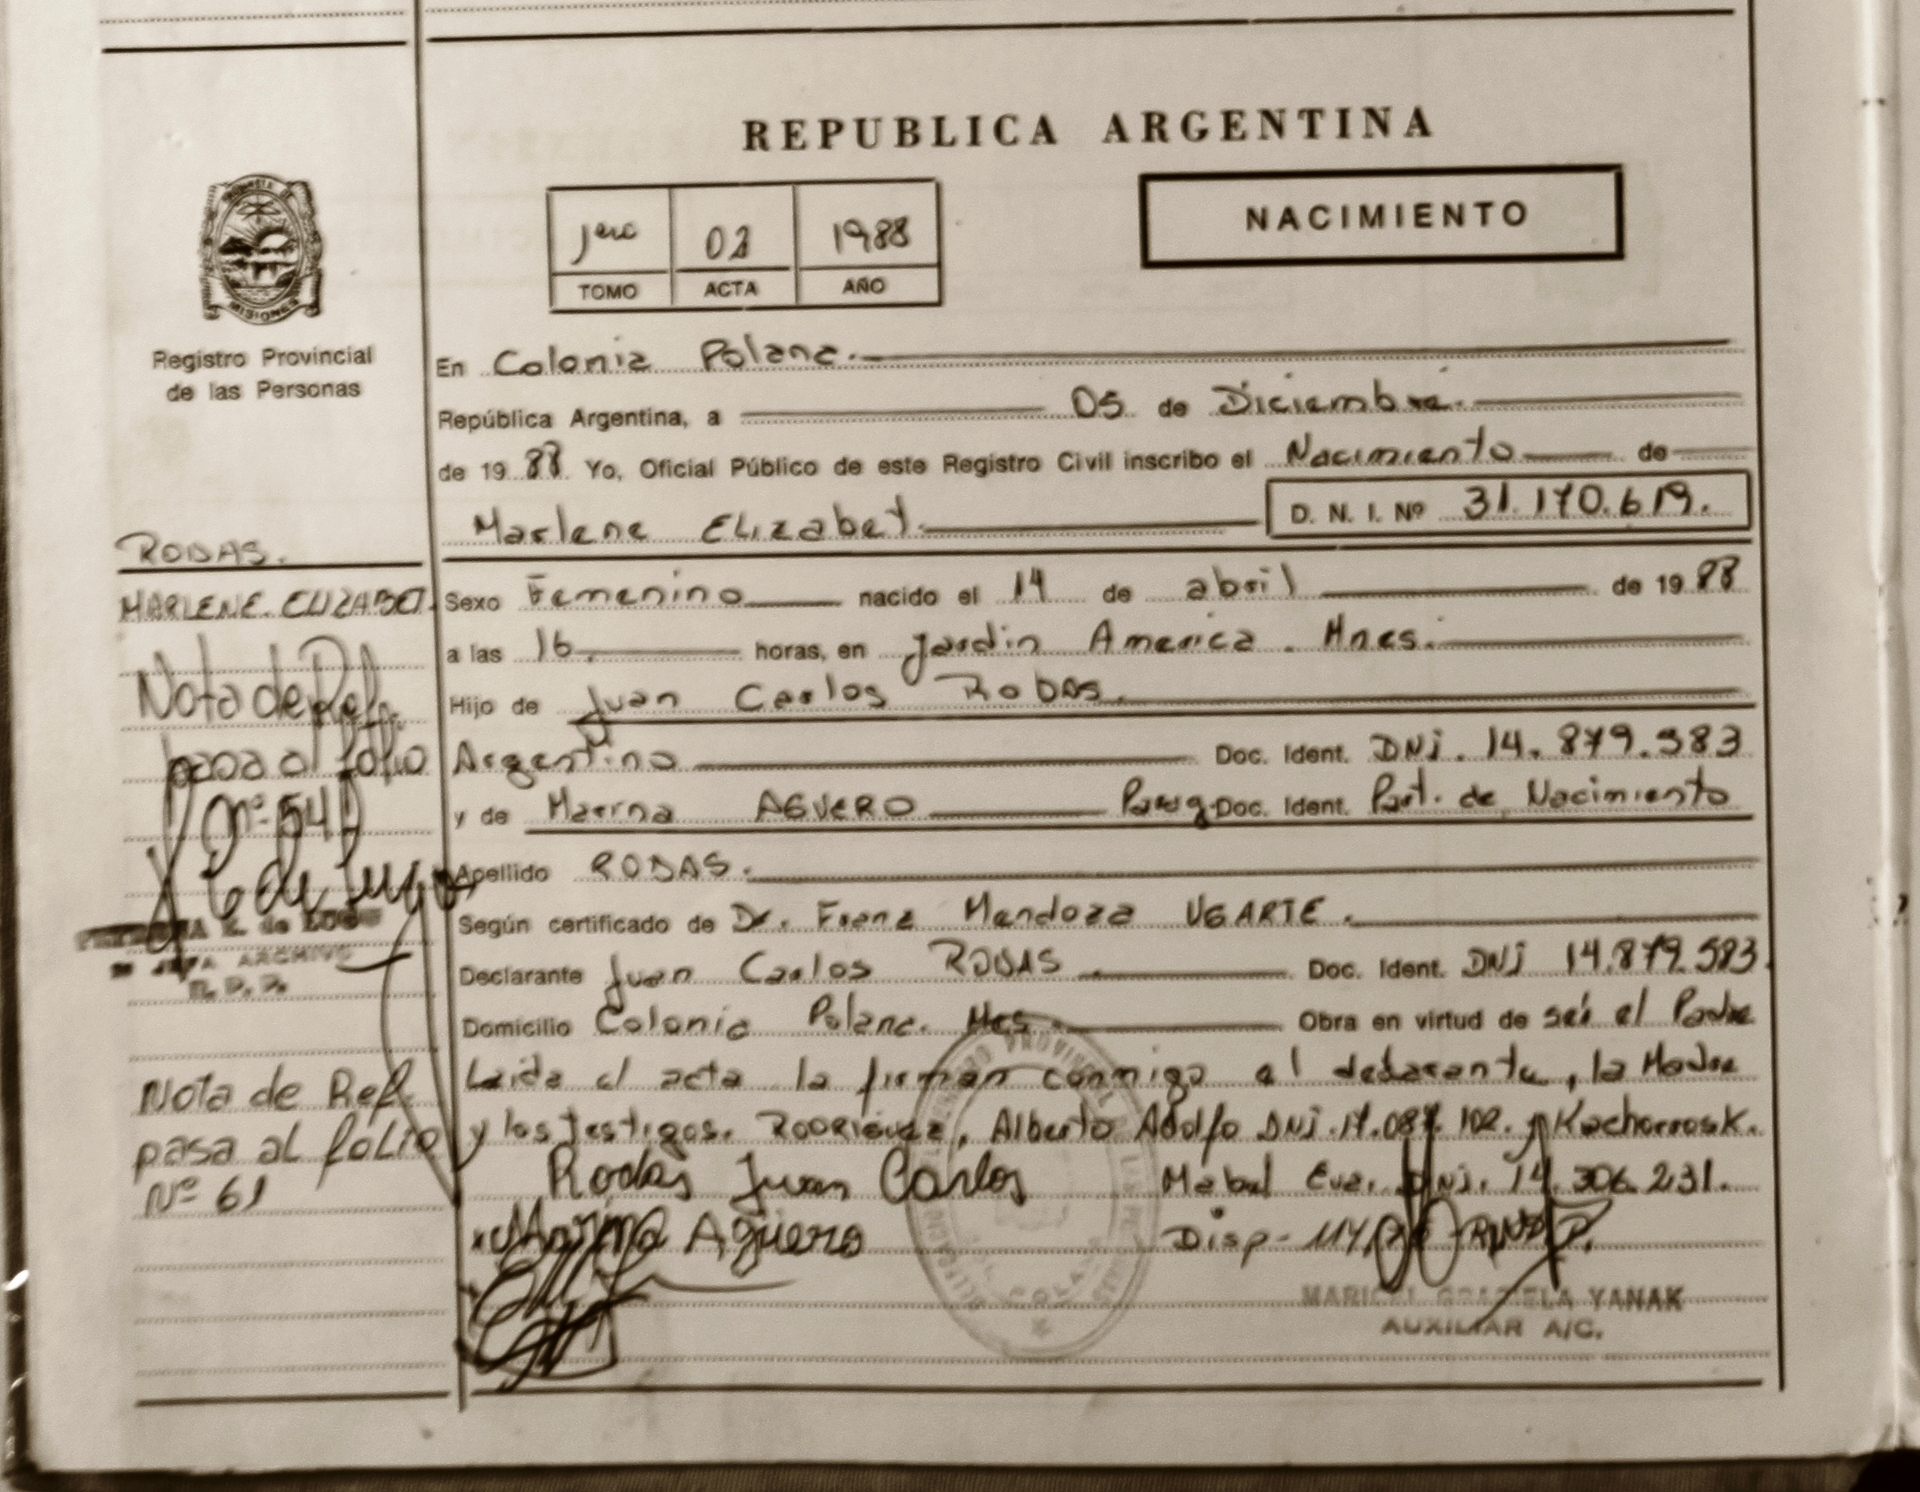 REPUBLICA ARGENTINA
NACIMIENTO
1988
TOMO ACTA AÑO
MISIONES
Registro Provincial
de las Personas
En Colonia Polana.
República Argentina, a 05 de Diciembre.
de 19 88 Yo, Oficial Público de este Registro Civil inscribo el Nacimiento de
Marlene Elizabet. D. N. I. Nº 31.170.619.
RODAS.
MARLENE ELIZABET.
Sexo Femenino nacido el 14 de abril de 19 88
a las 16. horas, en Jardin America. Mnes.
Hijo de Juan Carlos RODAS.
Argentino Doc. Ident. DNi. 14.879.583
y de Marina AGUERO Parag. Doc. Ident. Part. de Nacimiento
Apellido RODAS.
Según certificado de Dr. Franz Mendoza UGARTE.
Declarante Juan Carlos RODAS Doc. Ident. DNi 14.879.583.
Domicilio Colonia Polana. Mes. Obra en virtud de ser el Padre
Leida el acta la firman conmigo el declarante, la Madre
y los testigos. RODRIGUEZ, Alberto Adolfo DNi. 17.087.102. y Kachorrosk.
Mabel Eva. DNi. 14.306.231.
Rodas Juan Carlos
Marina Agüero
Disp-
MARICEL GRACIELA YANAK
AUXILIAR A/C.
Nota de Ref.
pasa al folio
Nº 54
ARCHIVO
R. P. P.
Nota de Ref.
pasa al folio
Nº 61